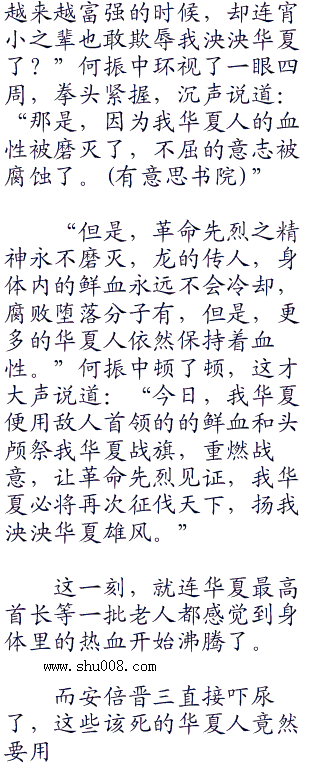 越来越富强的时候，却连宵
小之辈也敢欺辱我泱泱华夏
了？”何振中环视了一眼四
周，拳头紧握，沉声说道：
“那是，因为我华夏人的血
性被磨灭了，不屈的意志被
腐蚀了。(有意思书院)”
“但是，革命先烈之精
神永不磨灭，龙的传人，身
体内的鲜血永远不会冷却，
腐败堕落分子有，但是，更
多的华夏人依然保持着血
性。”何振中顿了顿，这才
大声说道：“今日，我华夏
便用敌人首领的的鲜血和头
颅祭我华夏战旗，重燃战
意，让革命先烈见证，我华
夏必将再次征伐天下，扬我
泱泱华夏雄风。”
这一刻，就连华夏最高
首长等一批老人都感觉到身
体里的热血开始沸腾了。
www.shu008.com
而安倍晋三直接吓尿
了，这些该死的华夏人竟然
要用